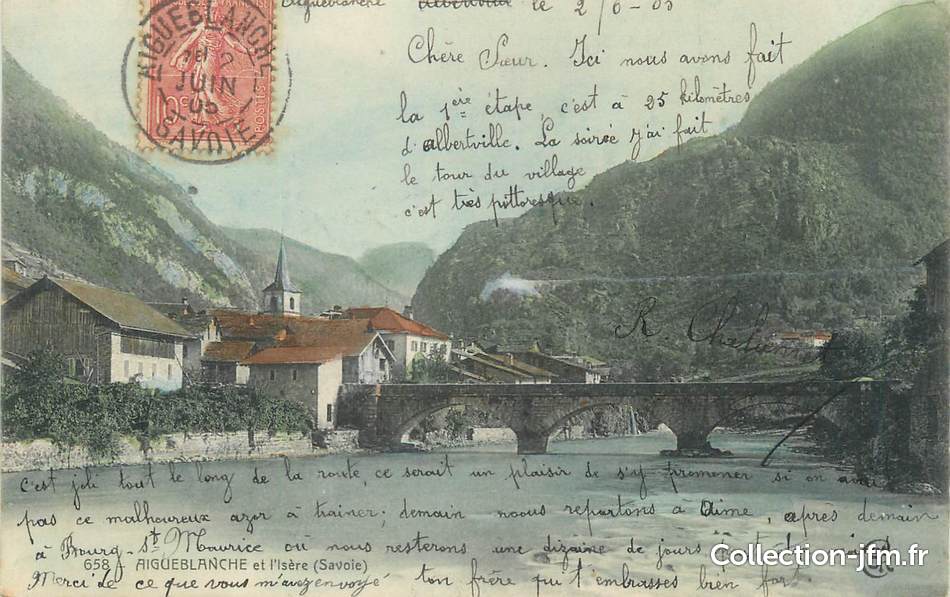 Aigueblanche Albertville le 2/6-05
AIGUEBLANCHE
JUIN
05
SAVOIE
10c
POSTES
Chère Sœur. Ici nous avons fait
la 1ère étape, c'est à 25 kilomètres
d'albertville. La soirée j'ai fait
le tour du village
c'est très pittoresque.
R. Chel
c'est joli tout le long de la route, ce serait un plaisir de s'y promener si on avait
pas ce malhoureux azor à trainer; demain noous repartons à Aime, après demain
à Bourg-St Maurice où nous resterons une dizaine de jours
658 AIGUEBLANCHE et l'Isère (Savoie)
Merci de ce que vous m'avez envoyé ton frère qui t'embrasses bien fort.
Collection-jfm.fr